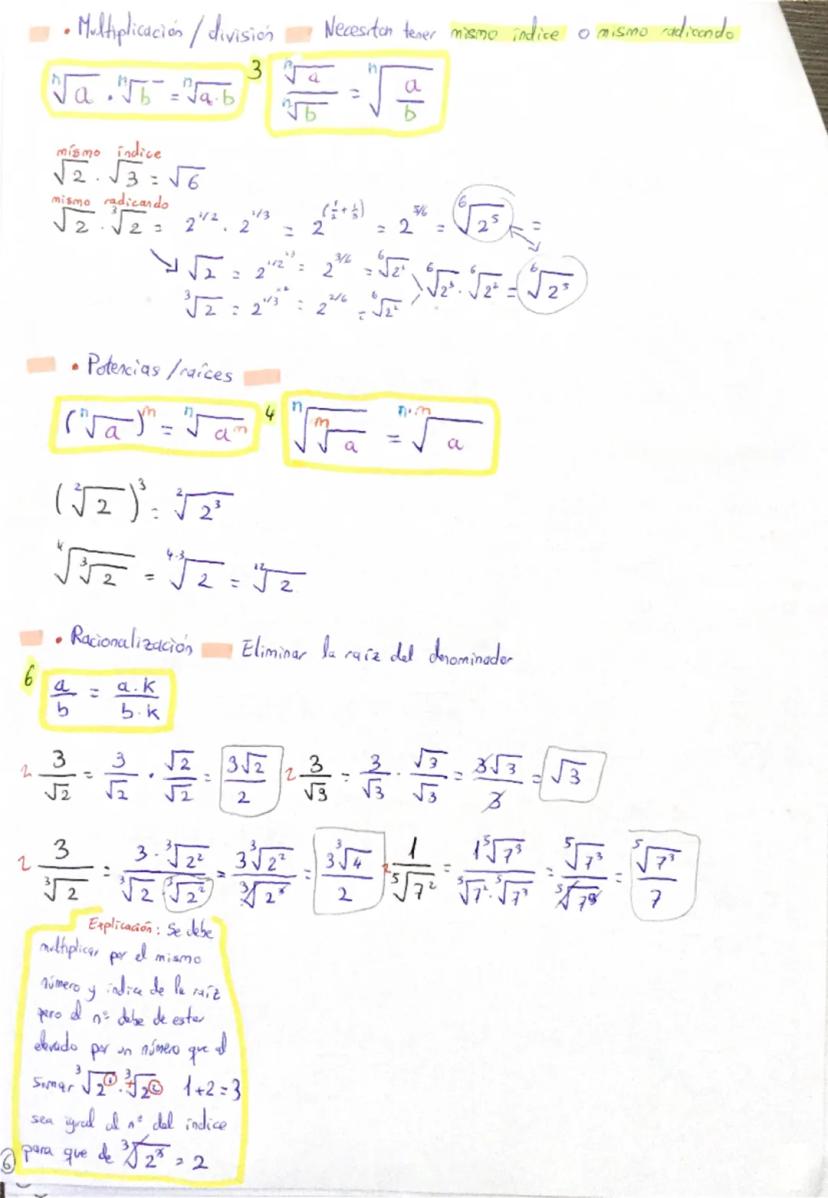 • Multiplicación / división Necesitan tener mismo índice o mismo radicando
ⁿ√a · ⁿ√b = ⁿ√a·b 3 ⁿ√a / ⁿ√b = ⁿ√(a/b)
mismo índice
√2 · √3 = √6
mismo radicando
√2 · ³√2 = 2^1/2 · 2^1/3 = 2^(1/2 + 1/3) = 2^5/6 = ⁶√2⁵ =
√2 = 2^1/2 ^·3 = 2^3/6 = ⁶√2³ ⁶√2³ · ⁶√2² = ⁶√2⁵
³√2 = 2^1/3 ^·2 = 2^2/6 = ⁶√2²
• Potencias / raíces
(ⁿ√a)^m = ⁿ√a^m 4 ⁿ√ᵐ√a = ⁿ·ᵐ√a
(²√2)³ = ²√2³
⁴√³√2 = ⁴·³√2 = ¹²√2
• Racionalización Eliminar la raíz del denominador
6 a/b = a·k / b·k
2 3/√2 = 3/√2 · √2/√2 = 3√2/2 2 3/√3 = 3/√3 · √3/√3 = 3√3/3 = √3
2 3/³√2 = 3·³√2² / ³√2 ³√2² = 3³√2² / ³√2³ = 3³√4/2 2 1/⁵√7² = 1⁵√7³ / ⁵√7² · ⁵√7³ = ⁵√7³ / ⁵√7⁵ = ⁵√7³/7
Explicación: Se debe
multiplicar por el mismo
número y índice de la raíz
pero el nº debe de estar
elevado por un número que al
sumar ³√2① + ³√2② 1+2=3
sea igual al nº del índice
para que de ³√2³ = 2
6